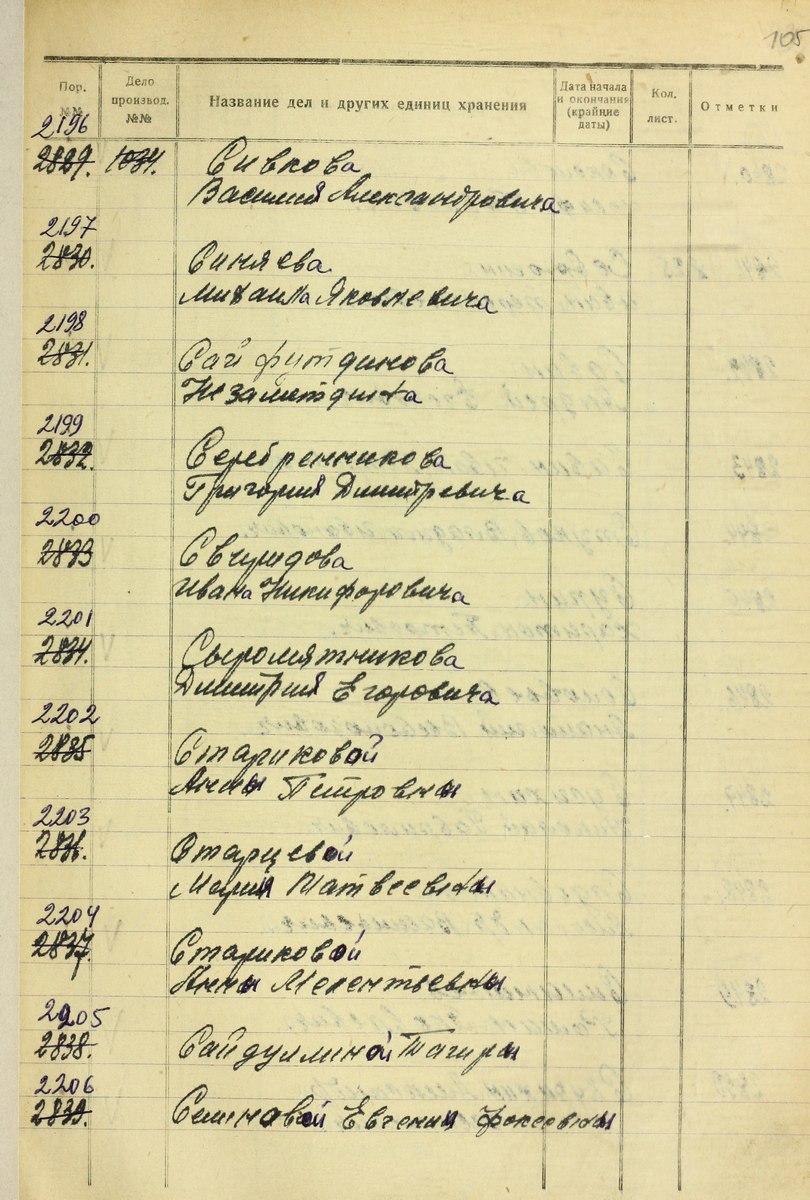 105
Пор. №№ Дело производ. №№ Название дел и других единиц хранения Дата начала и окончания (крайние даты) Кол. лист. Отметки
2196
2829. 1034. Сивкова
Василия Александровича
2197
2830. Синяева
Михаила Яковлевича
2198
2831. Сайфутдинова
Незаметдина
2199
2832. Серебренникова
Григория Дмитревича
2200
2833 Свчуридова
Ивана Никифоровича
2201
2834. Сыромятникова
Дмитрия Егоровича
2202
2835 Стариковой
Анны Петровны
2203
2836. Старцевой
Марии Матвеевны
2204
2837. Стариковой
Анны Мелентьевны
2205
2838. Сайдуллиной Тагиры
2206
2839. Семиновой Евгении Фокеевны